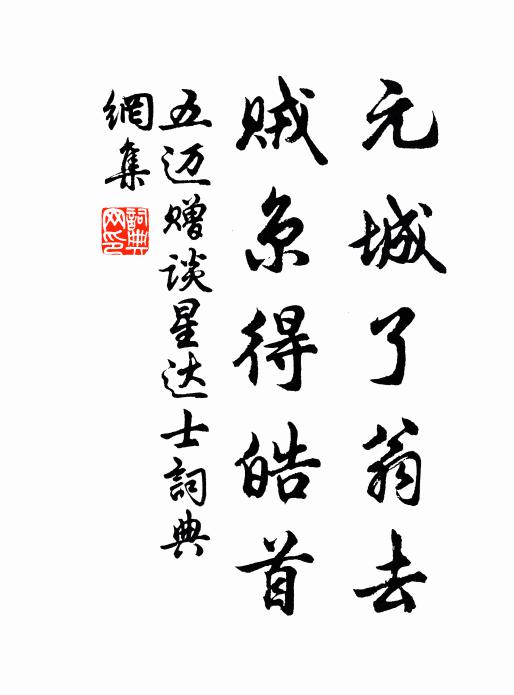 元城了翁去
贼京得皓首
五迈赠谈星达士詞典
網集
詞典網印